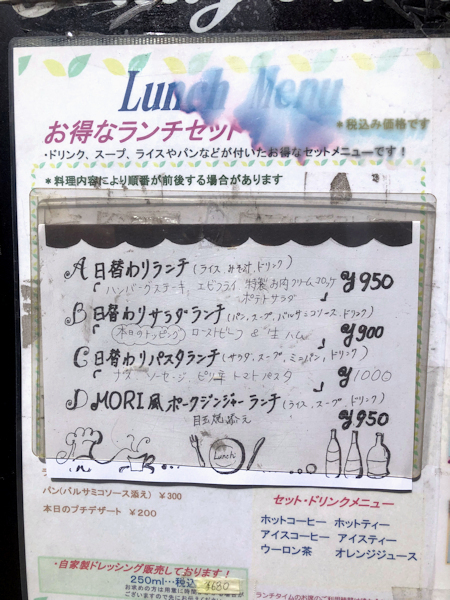 Lunch Menu
お得なランチセット
＊税込み価格です
・ドリンク、スープ、ライスやパンなどが付いたお得なセットメニューです！
＊料理内容により順番が前後する場合があります
A 日替わりランチ (ライス、みそ汁、ドリンク)
「ハンバーグステーキ、エビフライ 特製お肉クリームコロッケ
ポテトサラダ」
¥950
B 日替わりサラダランチ (パン、スープ、バルサミコソース、ドリンク)
「本日のトッピング ローストビーフ & 生ハム」
¥900
C 日替わりパスタランチ (サラダ、スープ、ミニパン、ドリンク)
「ナス ソーセージ ピリ辛 トマトパスタ」
¥1000
D MORI風ポークジンジャーランチ (ライス、スープ、ドリンク)
目玉焼添え
¥950
Lunch
パン(バルサミコソース添え) ¥300
本日のプチデザート ¥200
セット・ドリンクメニュー
ホットコーヒー ホットティー
アイスコーヒー アイスティー
ウーロン茶 オレンジジュース
・自家製ドレッシング販売しております！
250ml…税込 ¥680
お求めの方は用意に時間